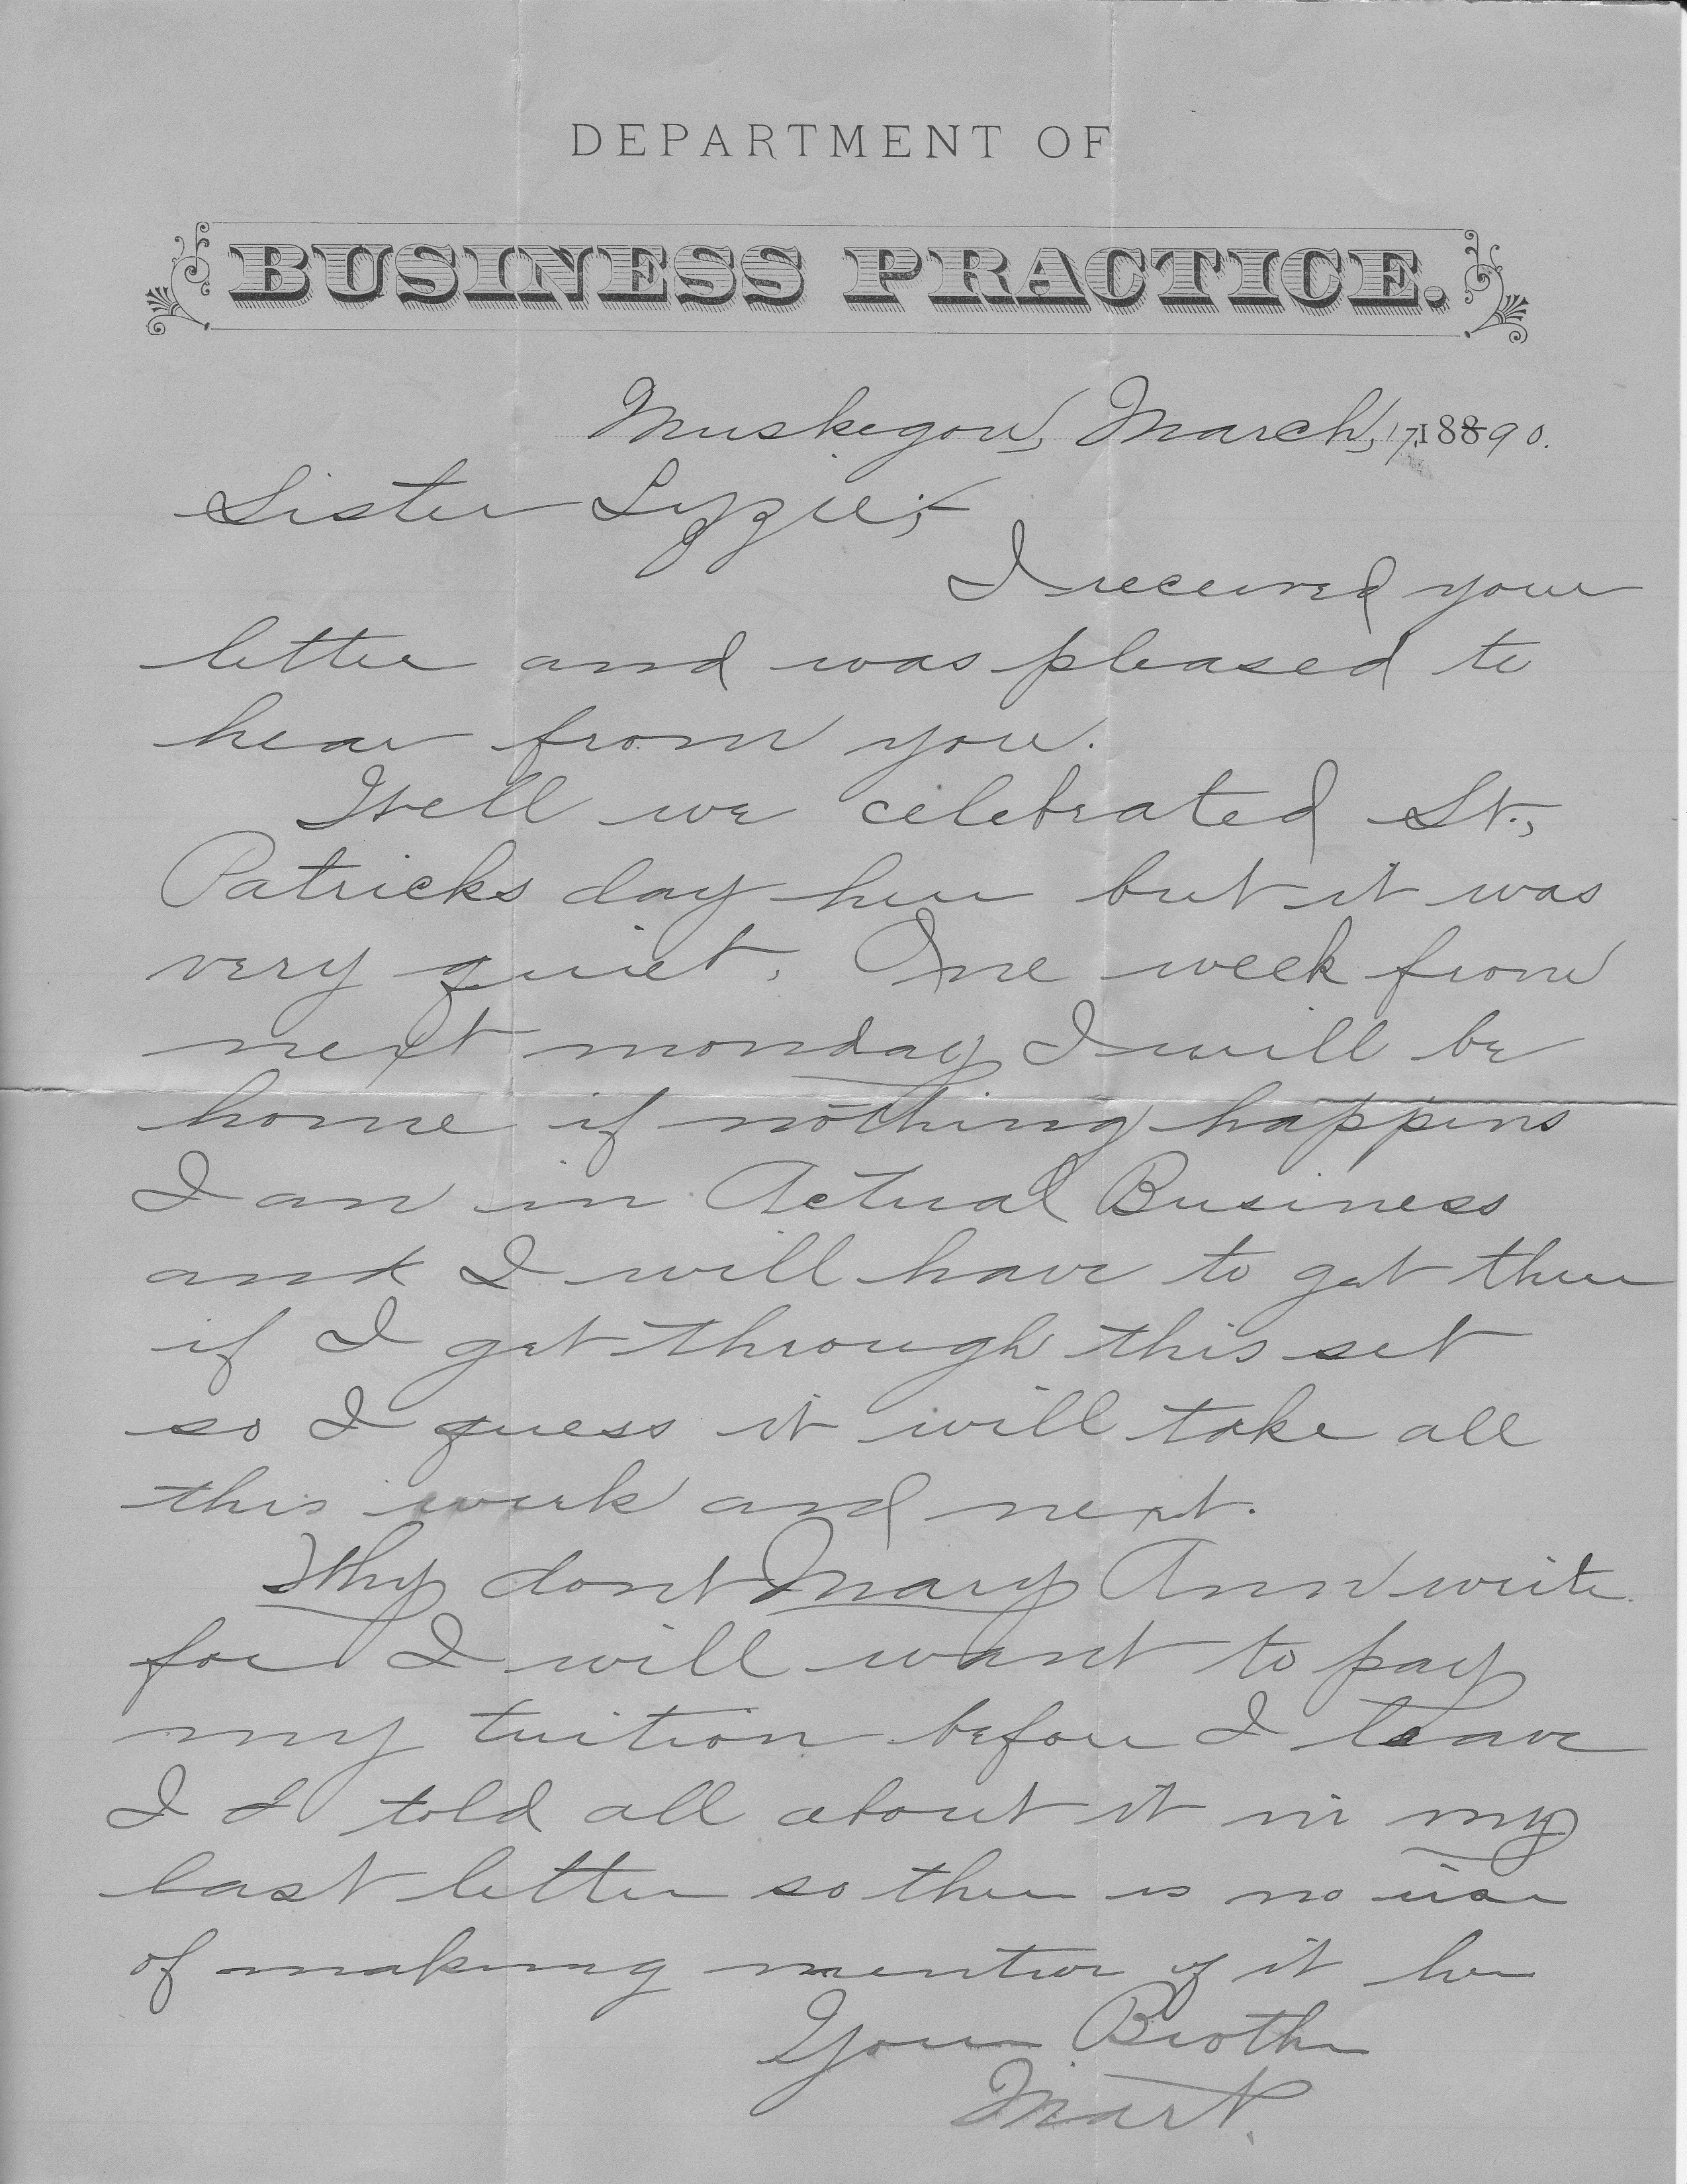 DEPARTMENT OF
BUSINESS PRACTICE.
Muskegon, March, 17, 18890.
Sister Lizzie;-
I received your
letter and was pleased to
hear from you.
Well we celebrated St.,
Patricks day here but it was
very quiet. One week from
next monday I will be
home if nothing happens
I am in Actual Business
and I will have to get there
if I get through this set
so I guess it will take all
this week and next.
Why dont Mary Ann write
for I will want to pay
my tuition before I leave
I I told all about it in my
last letter so there is no use
of making mention of it here
Your Brother
Mart.